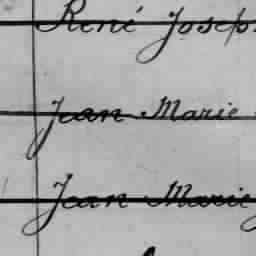 René Joseph
Jean Marie
Jean Marie